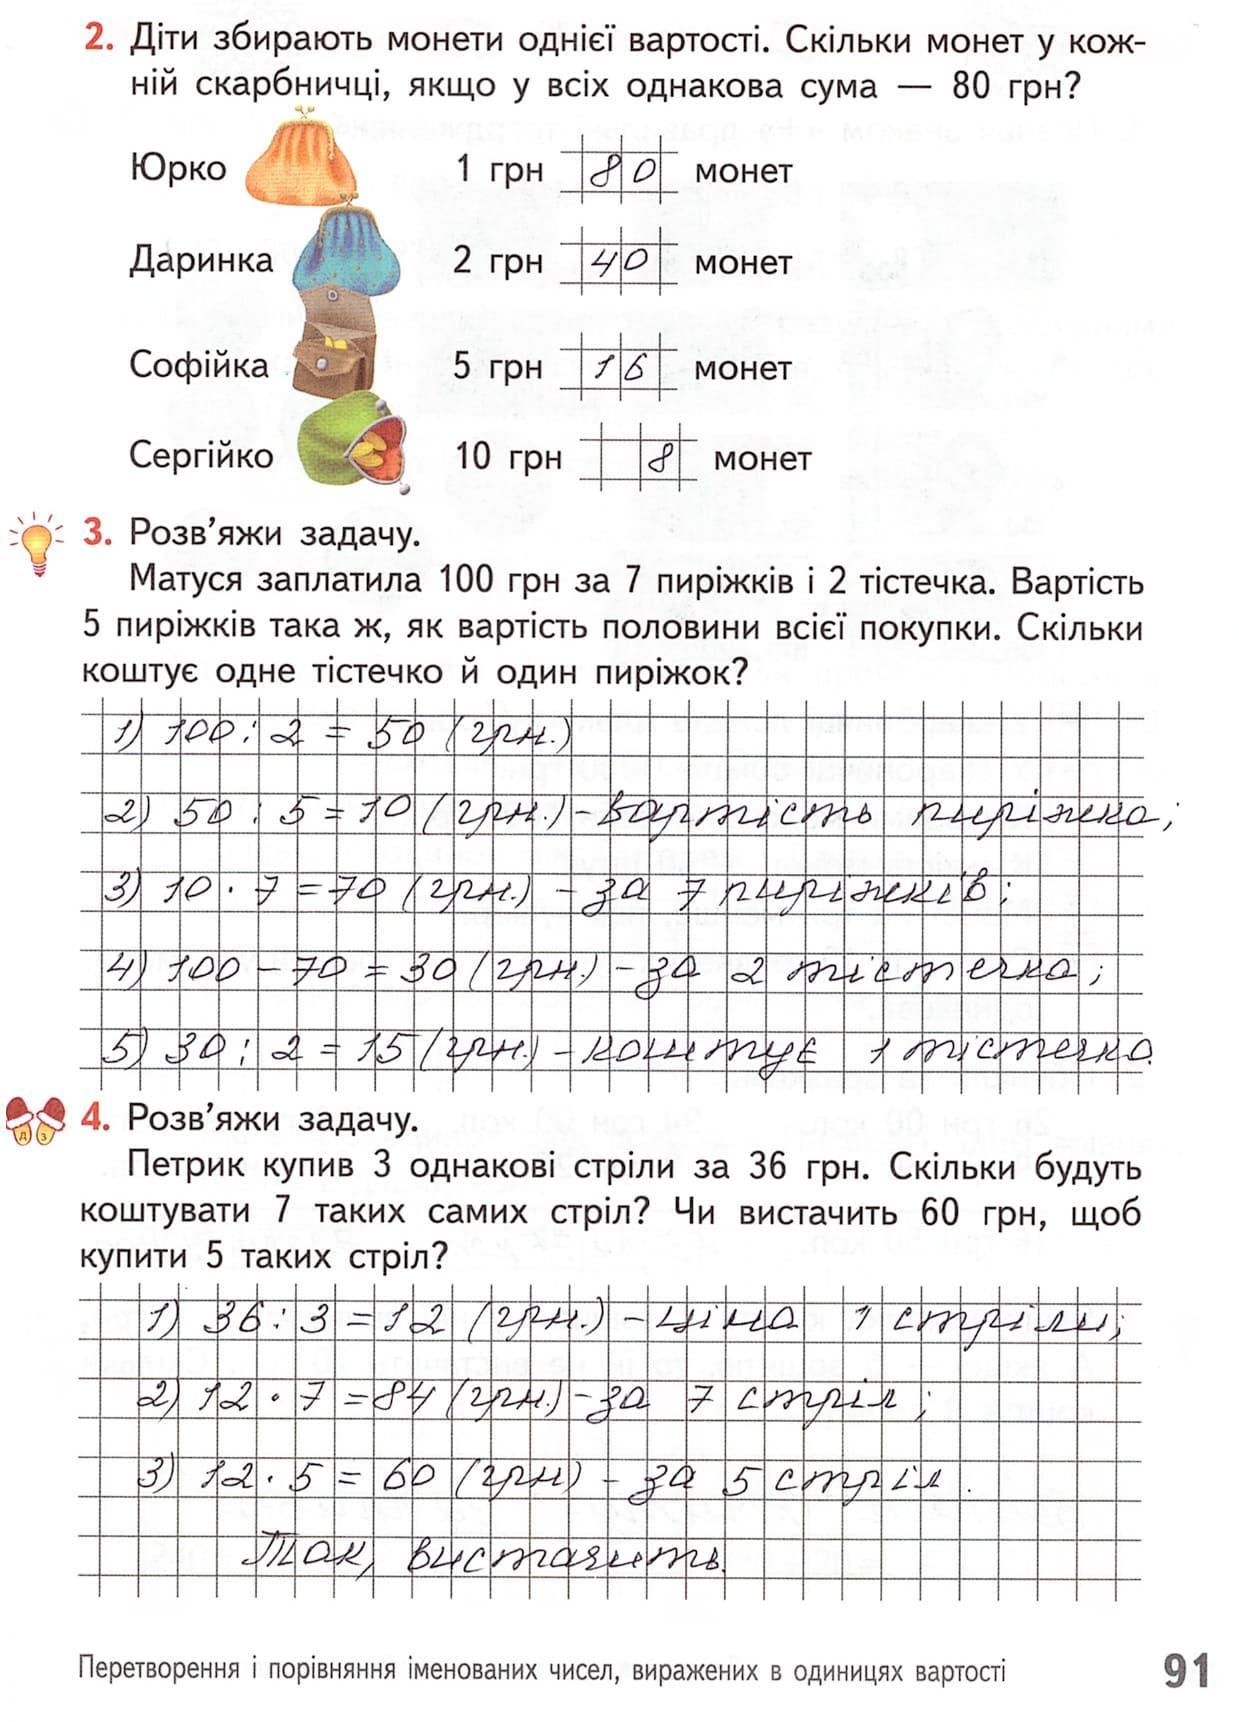 2. Діти збирають монети однієї вартості. Скільки монет у кож-
ній скарбничці, якщо у всіх однакова сума — 80 грн?
Юрко 1 грн 80 монет
Даринка 2 грн 40 монет
Софійка 5 грн 16 монет
Сергійко 10 грн 8 монет
3. Розв’яжи задачу.
Матуся заплатила 100 грн за 7 пиріжків і 2 тістечка. Вартість
5 пиріжків така ж, як вартість половини всієї покупки. Скільки
коштує одне тістечко й один пиріжок?
1) 100 : 2 = 50 (грн.)
2) 50 : 5 = 10 (грн.) – вартість пиріжка;
3) 10 · 7 = 70 (грн.) – за 7 пиріжків;
4) 100 – 70 = 30 (грн.) – за 2 тістечка;
5) 30 : 2 = 15 (грн.) – коштує 1 тістечко.
Д З
4. Розв’яжи задачу.
Петрик купив 3 однакові стріли за 36 грн. Скільки будуть
коштувати 7 таких самих стріл? Чи вистачить 60 грн, щоб
купити 5 таких стріл?
1) 36 : 3 = 12 (грн.) – ціна 1 стріли;
2) 12 · 7 = 84 (грн.) – за 7 стріл;
3) 12 · 5 = 60 (грн) – за 5 стріл.
Так, вистачить.
Перетворення і порівняння іменованих чисел, виражених в одиницях вартості 91